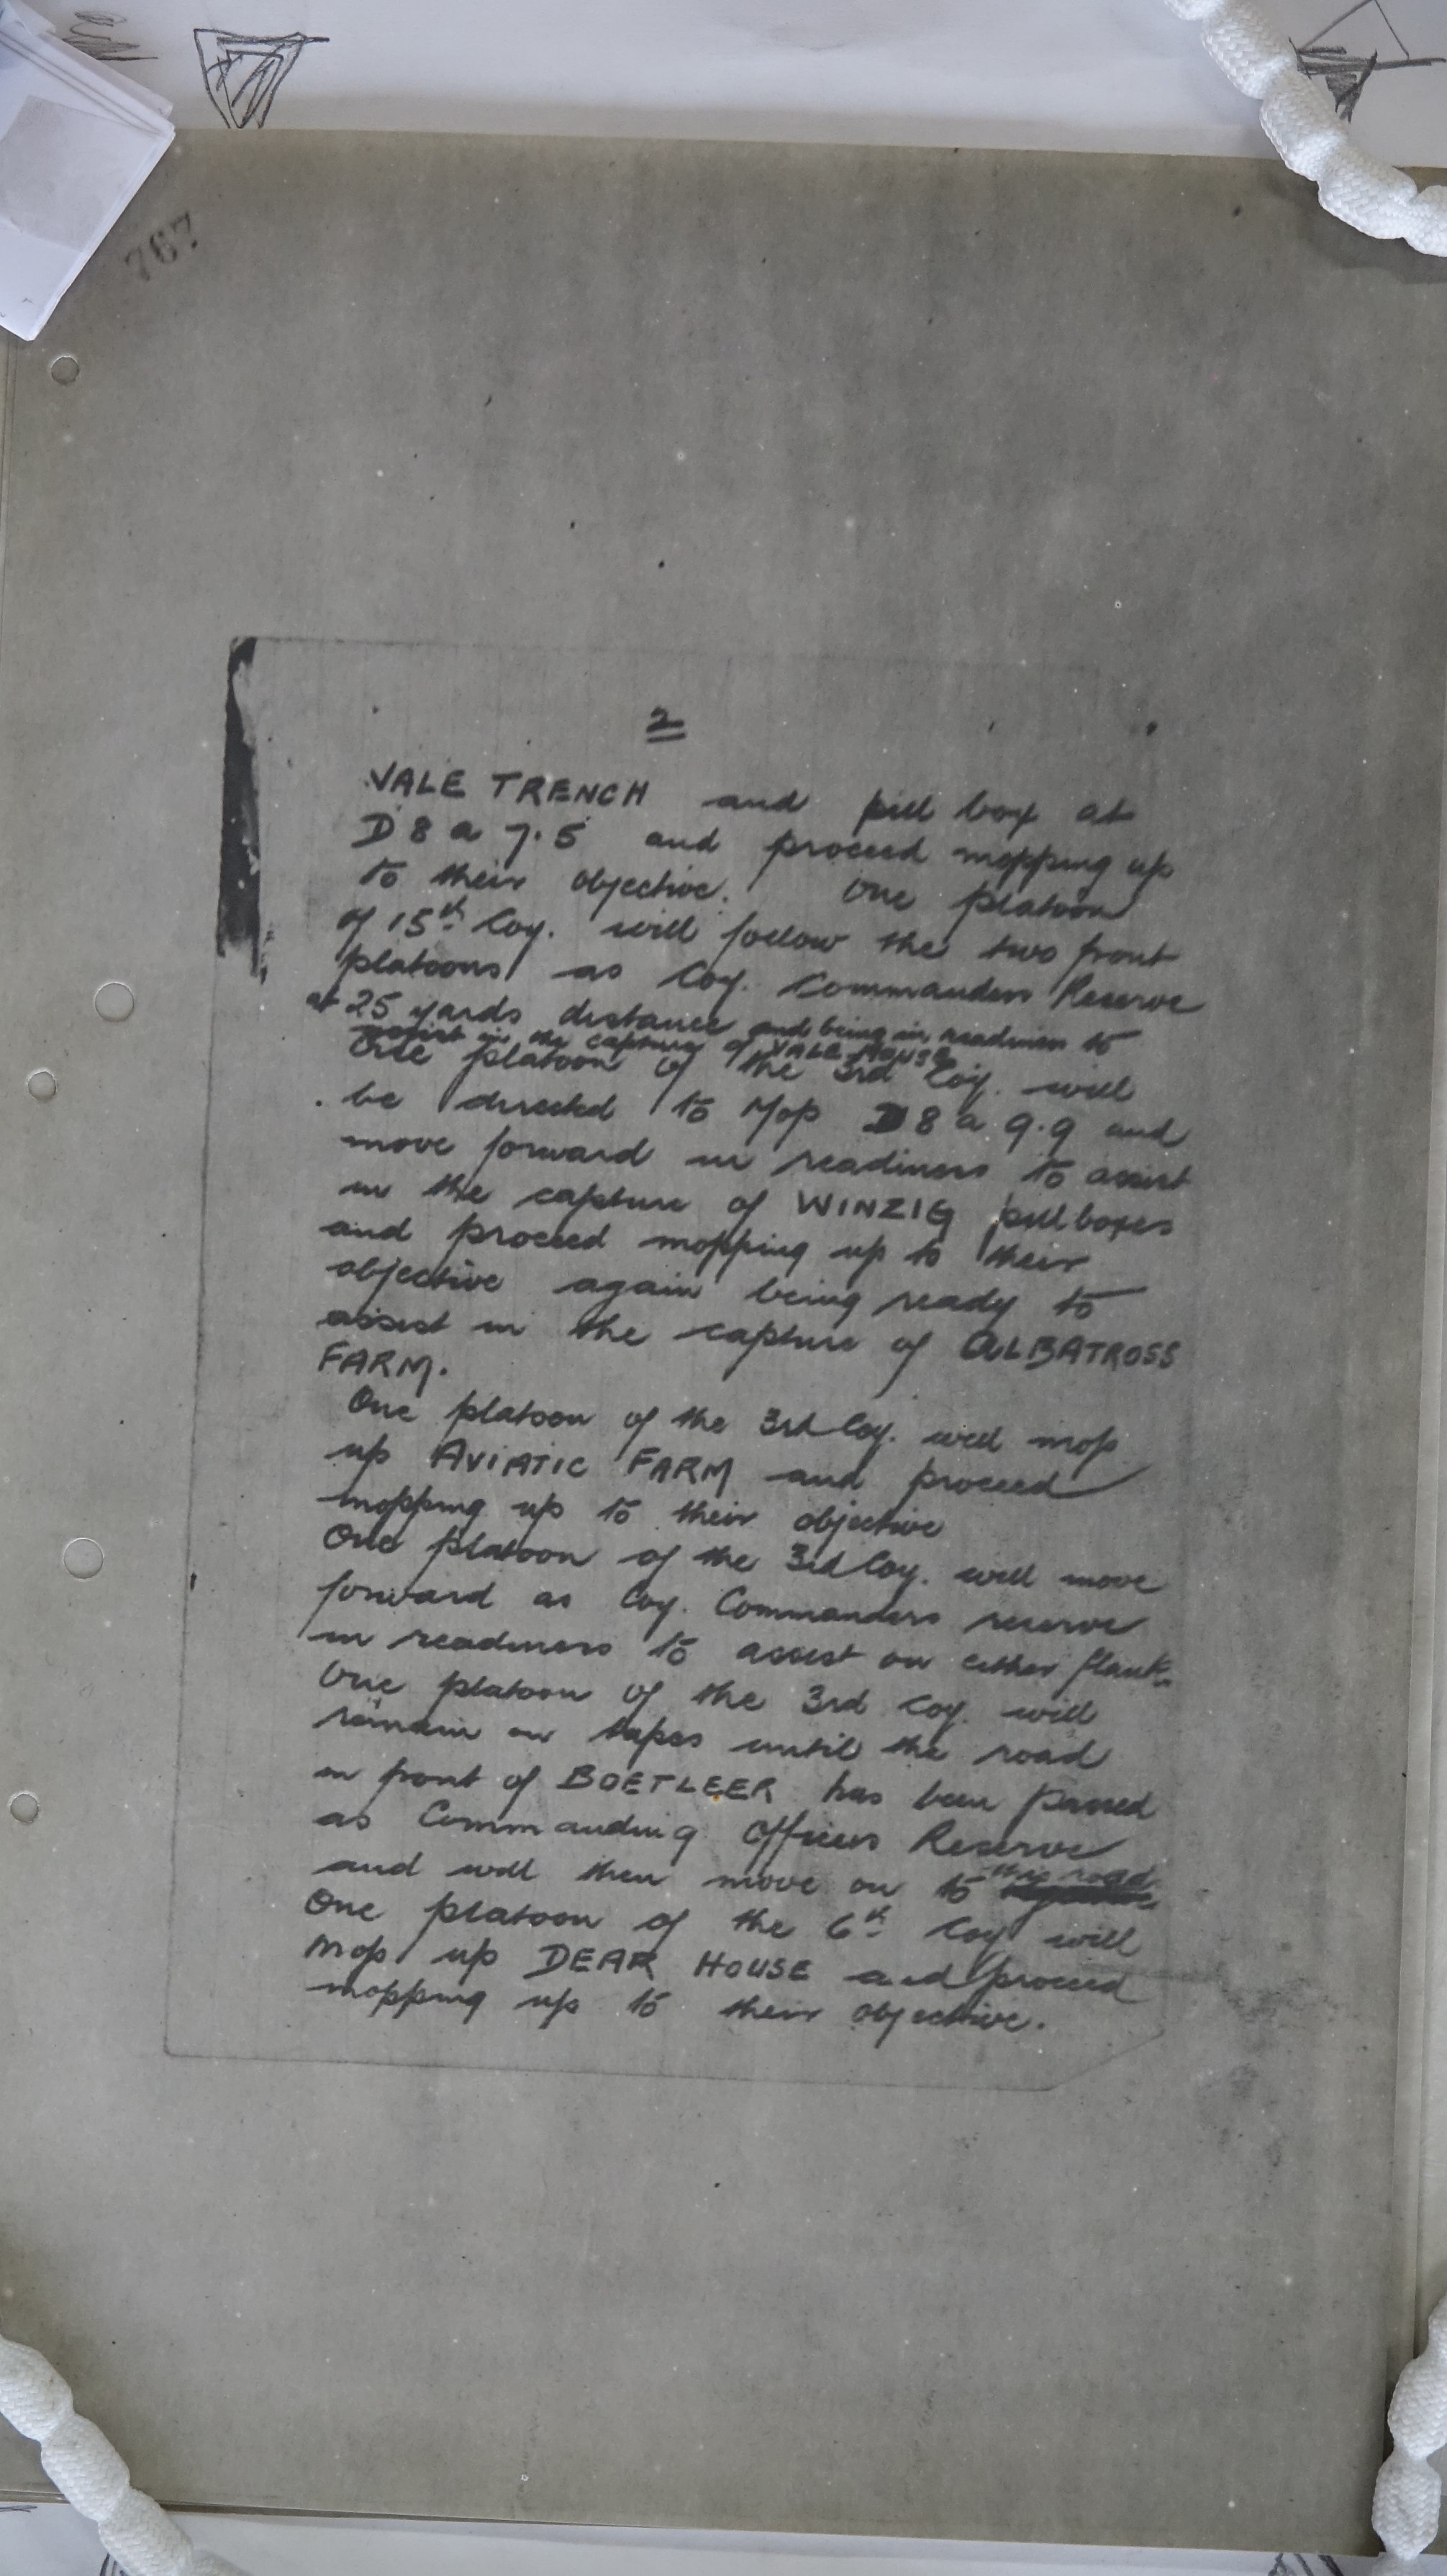 767
2
VALE TRENCH and pill box at
D 8 a 7.5 and proceed mopping up
to their objective. One platoon
of 15th Coy. will follow the two front
platoons as Coy. Commanders Reserve
at 25 yards distance and being in readiness to
assist in the capture of VALE HOUSE
One platoon of the 3rd Coy. will
be directed to Mop D 8 a 9.9 and
move forward in readiness to assist
in the capture of WINZIG pill boxes
and proceed mopping up to their
objective again being ready to
assist in the capture of ALBATROSS
FARM.
One platoon of the 3rd Coy. will mop
up AVIATIC FARM and proceed
mopping up to their objective
One platoon of the 3rd Coy. will move
forward as Coy. Commanders reserve
in readiness to assist on either flank.
One platoon of the 3rd Coy. will
remain on tapes until the road
in front of BOETLEER has been passed
as Commanding Officers Reserve
and will then move on to this road
One platoon of the 6th Coy will
Mop up DEAR HOUSE and proceed
mopping up to their objective.